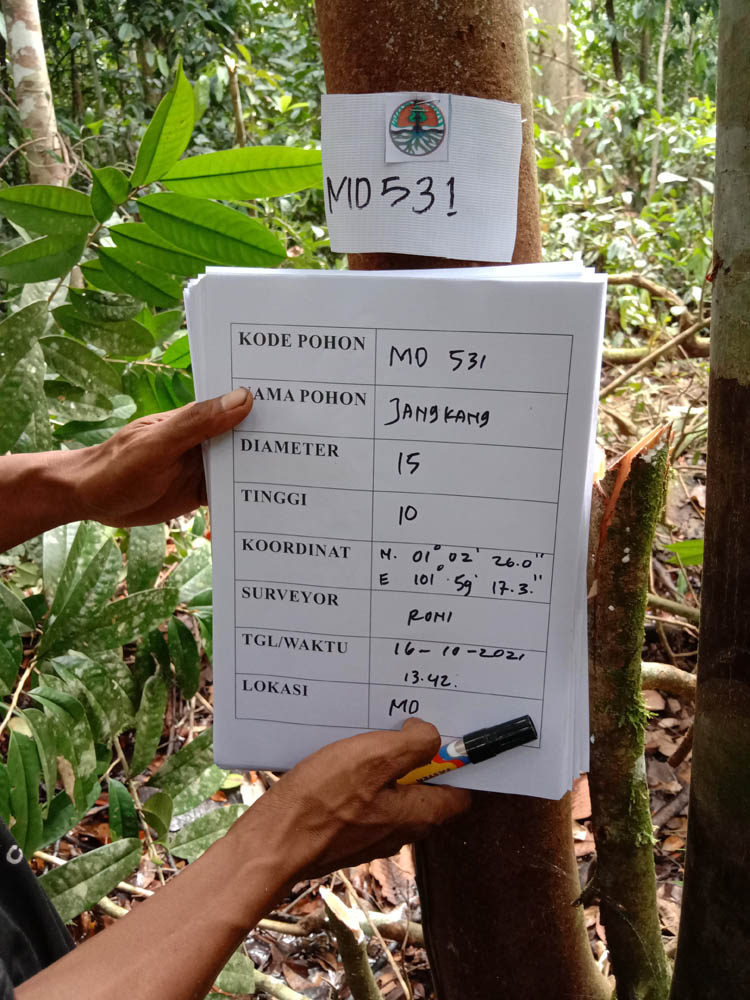 MD 531
KODE POHON MD 531
NAMA POHON JANGKANG
DIAMETER 15
TINGGI 10
KOORDINAT N. 01° 02' 26.0"
E 101° 59' 17.3"
SURVEYOR RONI
TGL/WAKTU 16-10-2021
13.42.
LOKASI MD